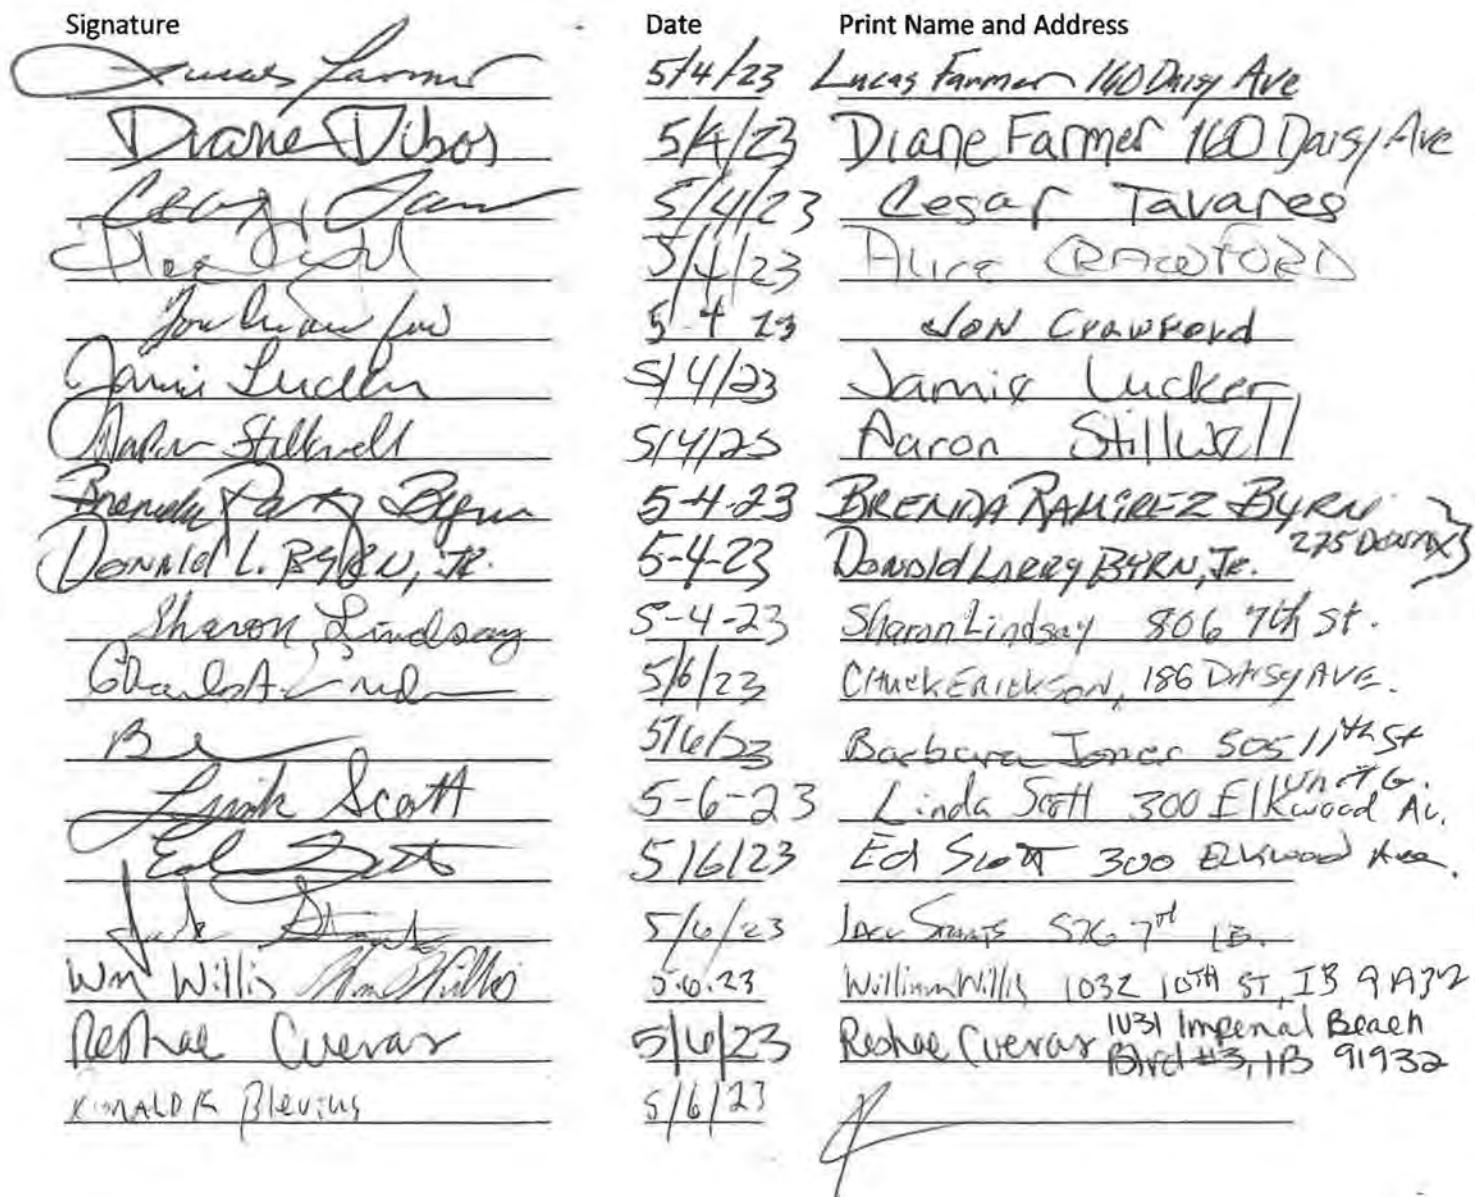 Signature Date Print Name and Address
Lucas Farmer 5/4/23 Lucas Farmer 160 Daisy Ave
Diane Dubos 5/4/23 Diane Farmer 160 Daisy Ave
5/4/23 Cesar Tavares
5/4/23 Alice CRAWFORD
Jon Crawford 5-4 23 JON CRAWFORD
Jamie Lucker 5/4/23 Jamie Lucker
Aaron Stillwell 5/4/23 Aaron Stillwell
Brenda Byrn 5-4-23 BRENDA RAMIREZ BYRN
DONALD L. BYRN, JR. 5-4-23 DONALD LARRY BYRN, JR. 275
Sharon Lindsay 5-4-23 Sharon Lindsay 806 7th St.
Charles A. 5/6/23 CHUCK ERICKSON, 186 DAISY AVE.
5/6/23 Barbara Jones 505 11th St
Unit G.
Linda Scott 5-6-23 Linda Scott 300 Elkwood Av.
Ed Scott 5/6/23 Ed Scott 300 Elkwood Ave.
5/6/23 576 7th IB.
Wm Willis Wm Willis 5.6.23 William Willis 1032 10TH ST, IB 91932
Reshae Cuevas 5/6/23 Reshae Cuevas 1031 Imperial Beach
Blvd #3, IB 91932
RONALD K Blevins 5/6/23